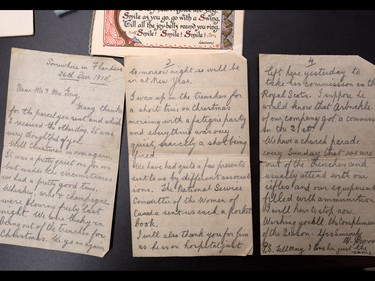 Smile as you go, go with a Swing,
Till all the joy-bells round you ring,
Smile! Smile! Smile!
Somewhere in Flanders
26th Dec. 1915
Dear Mr & Mrs
Many thanks
for the parcel you sent and which
I received the other day. It was
very thoughtful of you.
Well Christmas is on again.
It was a pretty quiet one for us
but under the circumstances
we had a pretty good time.
Whiskey and champagne
were flowing freely last
night. We were lucky in
being out of the trenches for
Christmas. We go in again
3
to-morrow night so will be
in at New Year.
I was up in the trenches for
a short time on Christmas
morning with a fatigue party
and everything was very
quiet, scarcely a shot being
fired.
We have had quite a few presents
sent to us by different associat
ions. The National Service
Committee of the Women of
Canada sent us each a pocket
book.
I will also thank you for
as he is on
4
left here yesterday to
take his commission in the
Royal Scots. I suppose you
would know that Arbuckle
of our company got a commiss
ion in the 21st.
We had a church parade
every Sunday that we are
out of the trenches and
usually attend with our
rifles and our equipment
filled with ammunition.
I will have to stop now.
Wishing you all the compliments
of the Season. Yours sincerely
P.S. Tell
the same